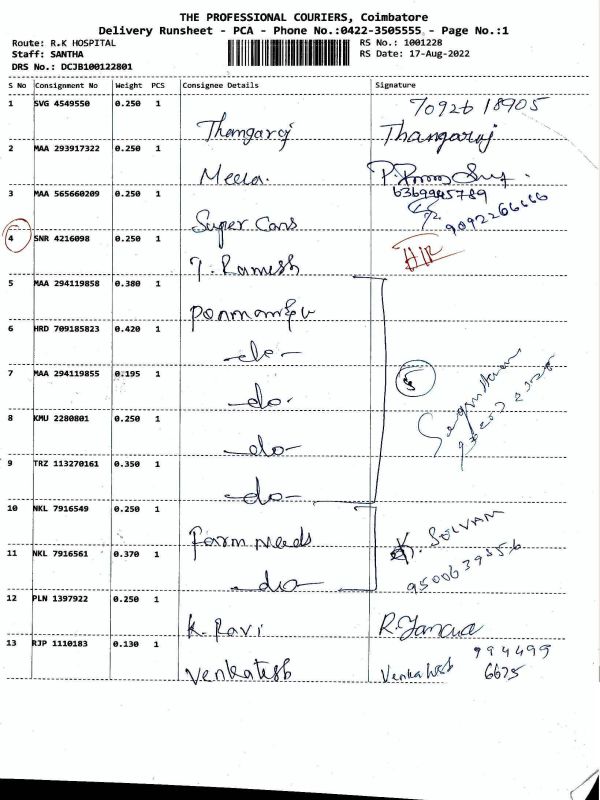 THE PROFESSIONAL COURIERS, Coimbatore
Delivery Runsheet - PCA - Phone No.:0422-3505555 - Page No.:1
Route: R.K HOSPITAL RS No.: 1001228
Staff: SANTHA RS Date: 17-Aug-2022
DRS No.: DCJB100122801
S No Consignment No Weight PCS Consignee Details Signature
1 SVG 4549550 0.250 1 Thangaraj 70926 18905 Thangaraj
2 MAA 293917322 0.250 1 Meera.
3 MAA 565660209 0.250 1 Super Cars 6369945789 9092266666
4 SNR 4216098 0.250 1 T. Ramesh
5 MAA 294119858 0.380 1
6 HRD 709185823 0.420 1 -do-
7 MAA 294119855 0.195 1 -do-
8 KMU 2280801 0.250 1 -do-
9 TRZ 113270161 0.350 1 -do-
10 NKL 7916549 0.250 1 Farm needs K. SELVAM
11 NKL 7916561 0.370 1 -do-
12 PLN 1397922 0.250 1 K. Ravi
13 RJP 1110183 0.130 1 Venkatesh Venkatesh 994499 6675